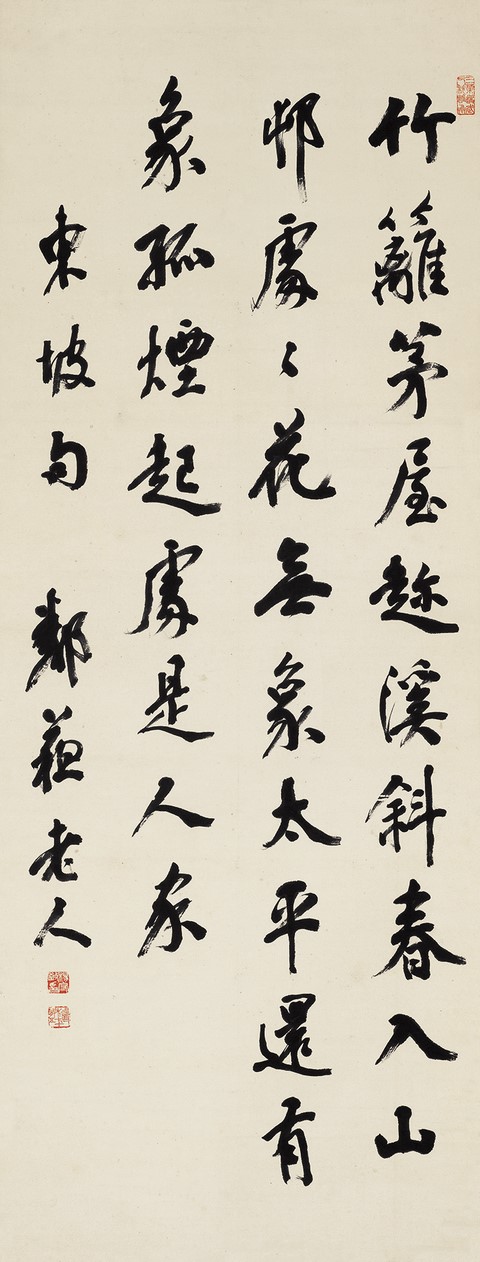 竹籬茅屋趂溪斜春入山
邨處〻花無象太平還有
象孤煙起處是人家
東坡句 鄰蘓老人